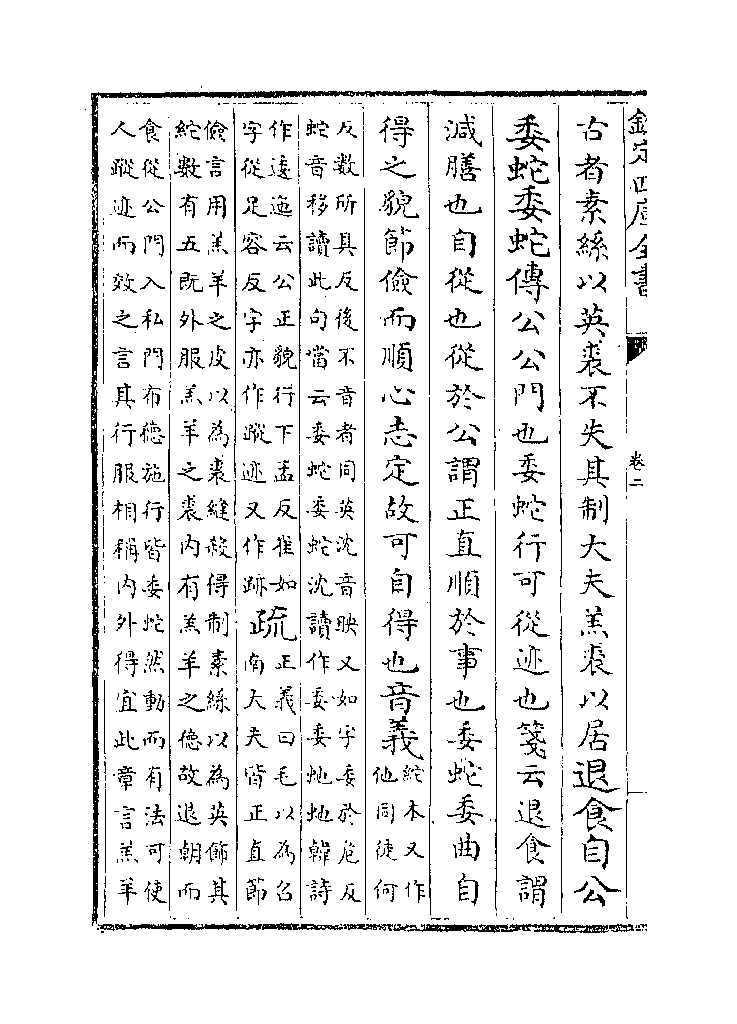 欽定四庫全書
卷二
古者素絲以英裘不失其制大夫羔裘以居退食自公
委蛇委蛇傳公公門也委蛇行可從迹也箋云退食謂
減膳也自從也從於公謂正直順於事也委蛇委曲自
得之貌節儉而順心志定故可自得也音義
紽本又作
他同徒何
反數所具反後不音者同英沈音映又如字委於危反
蛇音移讀此句當云委蛇委蛇沈讀作委委虵虵韓詩
作逶迤云公正貌行下孟反崔如
字從足容反字亦作蹤迹又作跡
疏
正義曰毛以為召
南大夫皆正直節
儉言用羔羊之皮以為裘縫殺得制素絲以為英飾其
紽數有五既外服羔羊之裘内有羔羊之德故退朝而
食從公門入私門布德施行皆委蛇然動而有法可使
人蹤迹而效之言其行服相稱内外得宜此章言羔羊